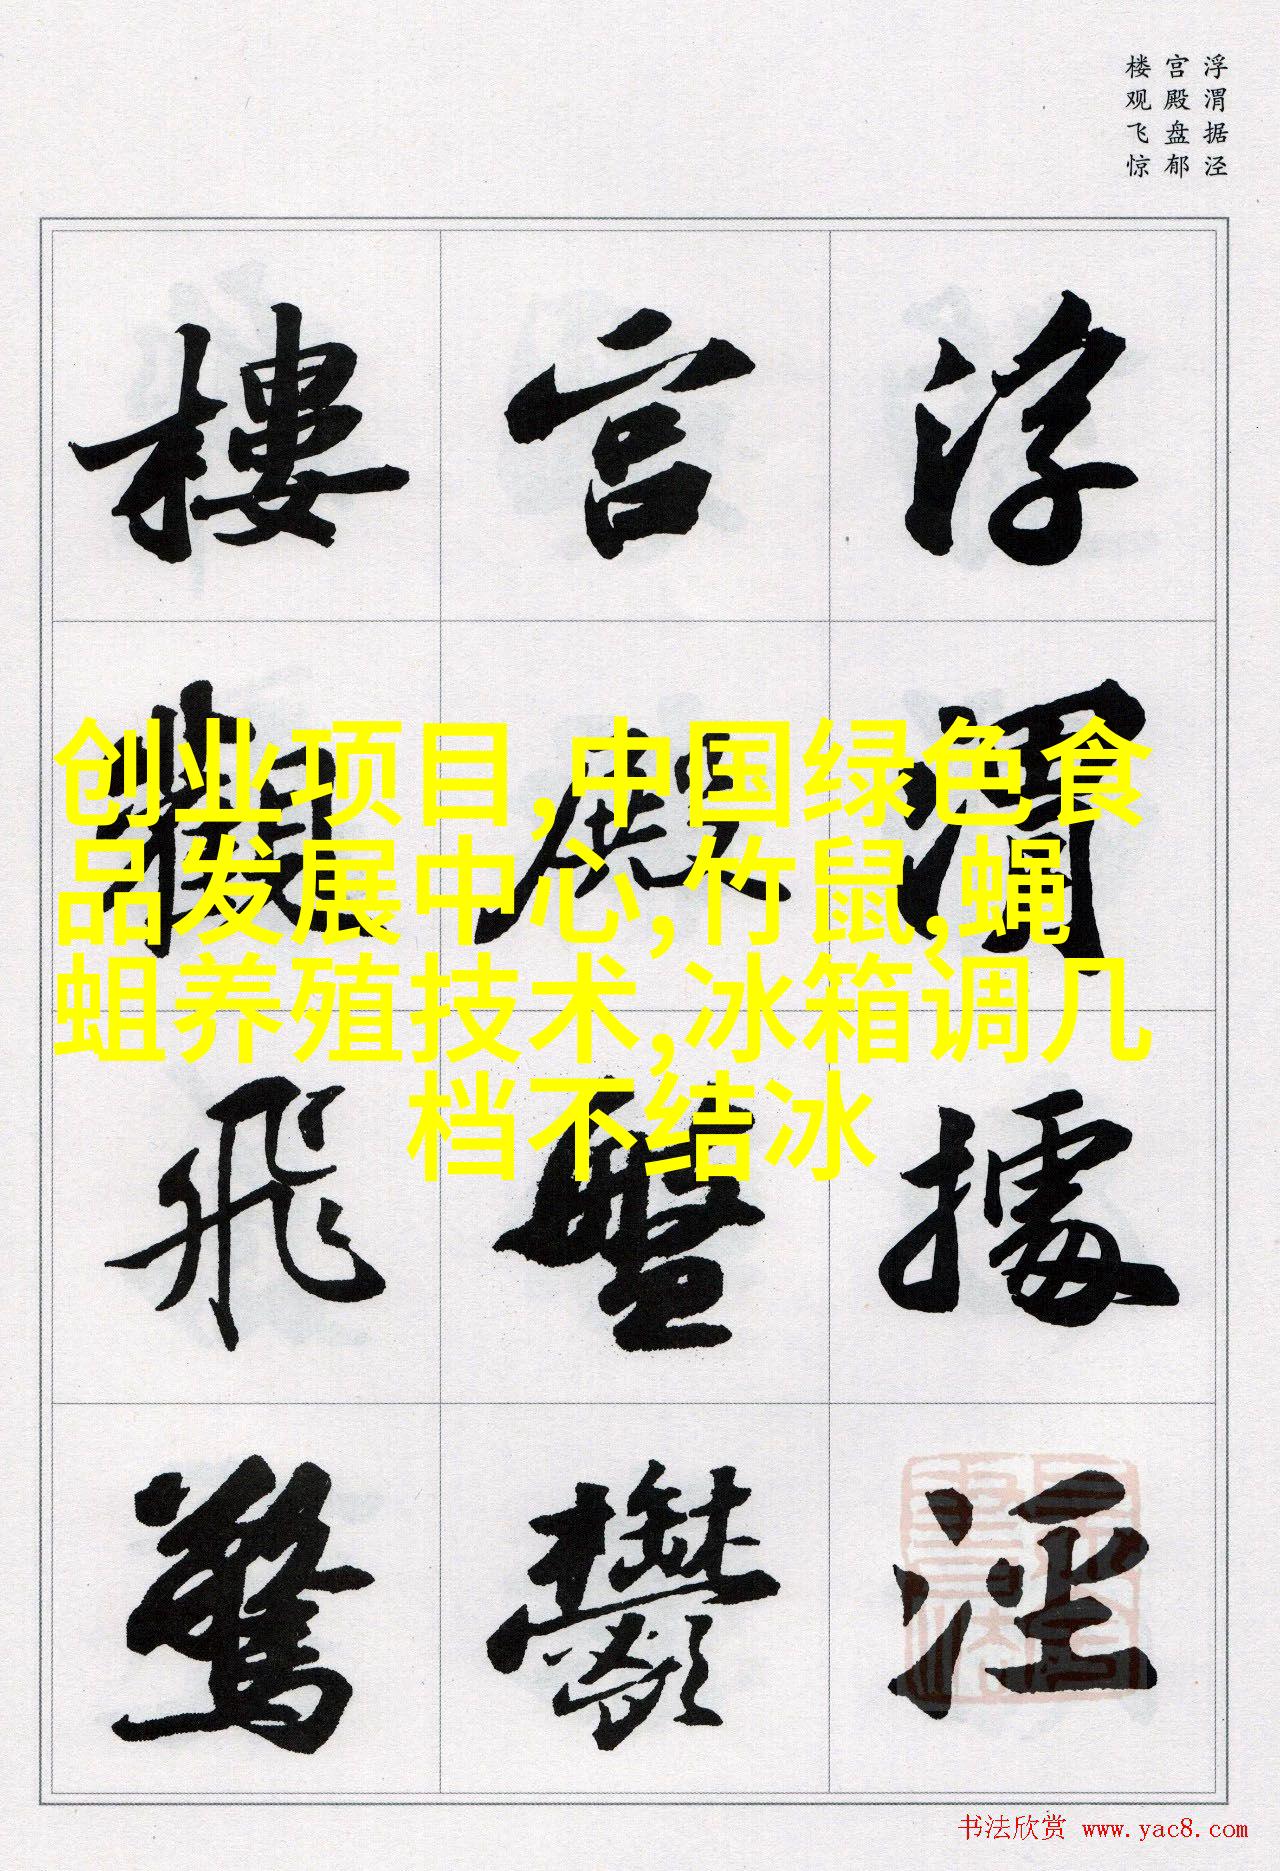 浮渭据泾
宫殿盘郁
楼观飞惊
浮渭據泾
宫殿盤鬱
樓觀飛驚
创业项目,中国绿色食
品发展中心,竹鼠,蝇
蛆养殖技术,冰箱调几
档不结冰
书法欣赏 www.yac8.com